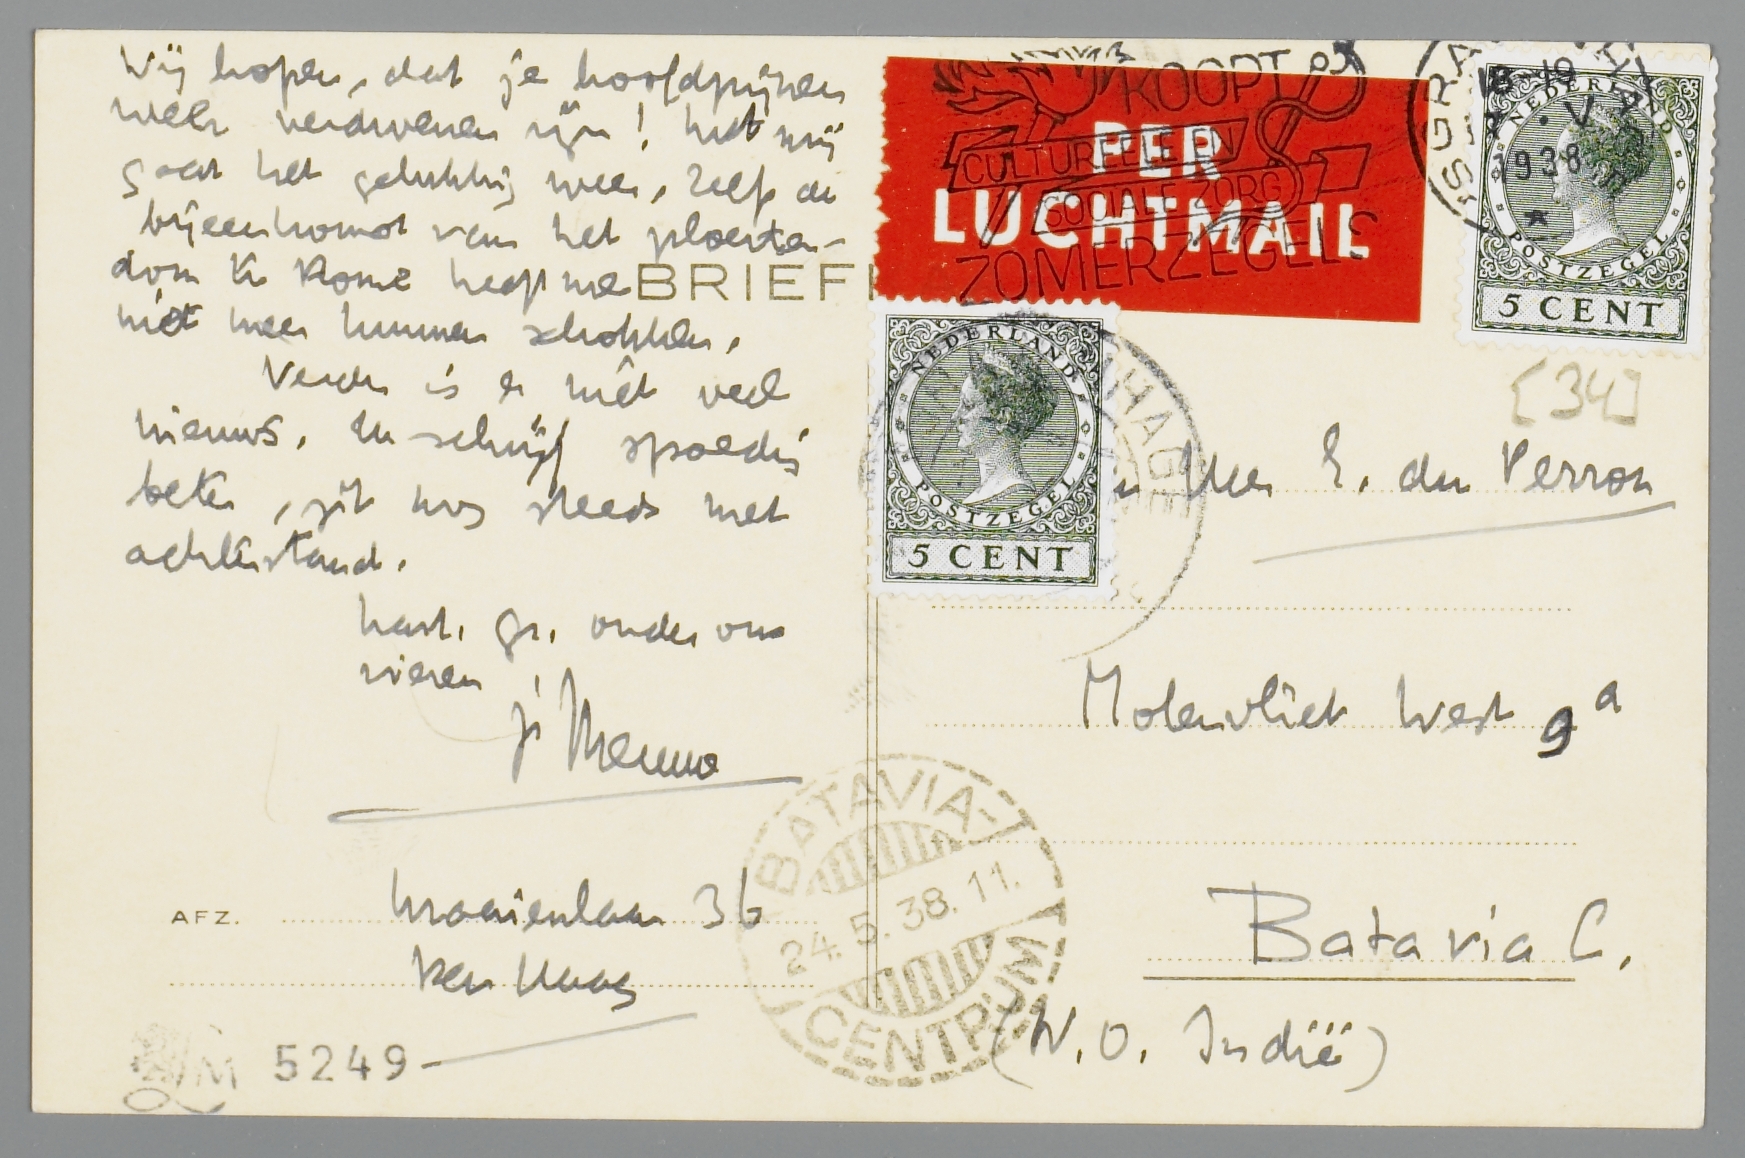 Wij hopen, dat je hoofdpijnen
weer verdwenen zijn! Met mij
gaat het gelukkig weer, zelfs de
bijeenkomst van het ploerten-
dom te Rome heeft me
niet meer kunnen schokken.
Verder is er niet veel
nieuws. Ik schrijf spoedig
beter, zit nog steeds met
achterstand.
hart. gr. onder ons
vieren
je Menno
AFZ. Kraaienlaan 36
Den Haag
5249
BRIEFK
PER
LUCHTMAIL
KOOPT
CULTUREELE EN
SOCIALE ZORG
ZOMERZEGELS
'SGRAVENHAGE
18-19
V
1938
NEDERLAND
POSTZEGEL
5 CENT
NEDERLAND
POSTZEGEL
5 CENT
[34]
E. du Perron
Molenvliet West 9a
Batavia C.
(N.O. Indië)
BATAVIA-
24.5.38.11.
CENTRUM
LM